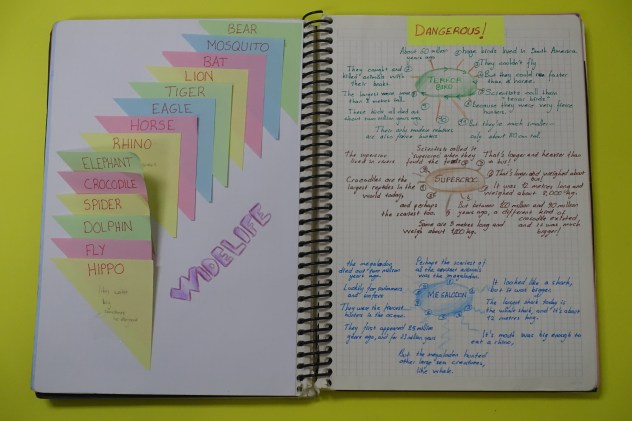 BEAR
MOSQUITO
BAT
LION
TIGER
EAGLE
HORSE
RHINO
ELEPHANT
CROCODILE
SPIDER
DOLPHIN
FLY
HIPPO
big
WIDELIFE
DANGEROUS!
About 60 million years ago
huge birds lived in South America.
They couldn't fly
But they could run faster than a horse.
Scientists call them "terror birds"
because they were very fierce hunters.
But they're much smaller
only about 90 cm tall.
Their only modern relatives are also fierce hunters
These birds all died out about two million years ago
The largest were more than 3 metres tall.
They caught and killed animals with their beaks
TERROR BIRD
Scientists called it "supercroc" when they found the
That's longer and heavier than a bus!
That's longer and weighed about
It was 12 metres long and weighed about
But between 100 million and 90 million years ago, a different kind of crocodile existed, and it was much bigger!
Some are 7 metres long and weigh about
and perhaps the scariest too.
Crocodiles are the largest reptiles in the world today,
The supercroc lived in rivers
SUPERCROC
Perhaps the scariest of all the ancient animals was the megalodon.
It looked like a shark, but it was bigger.
The largest shark today is the whale shark, and it's about 12 metres long.
It's mouth was big enough to eat a
But the megalodon hunted other large sea creatures, like whale.
They first appeared 28 million years ago, and for
They were the fiercest hunters in the ocean.
Luckily for swimmers and surfers
the megalodon died out two million years ago.
MEGALODON